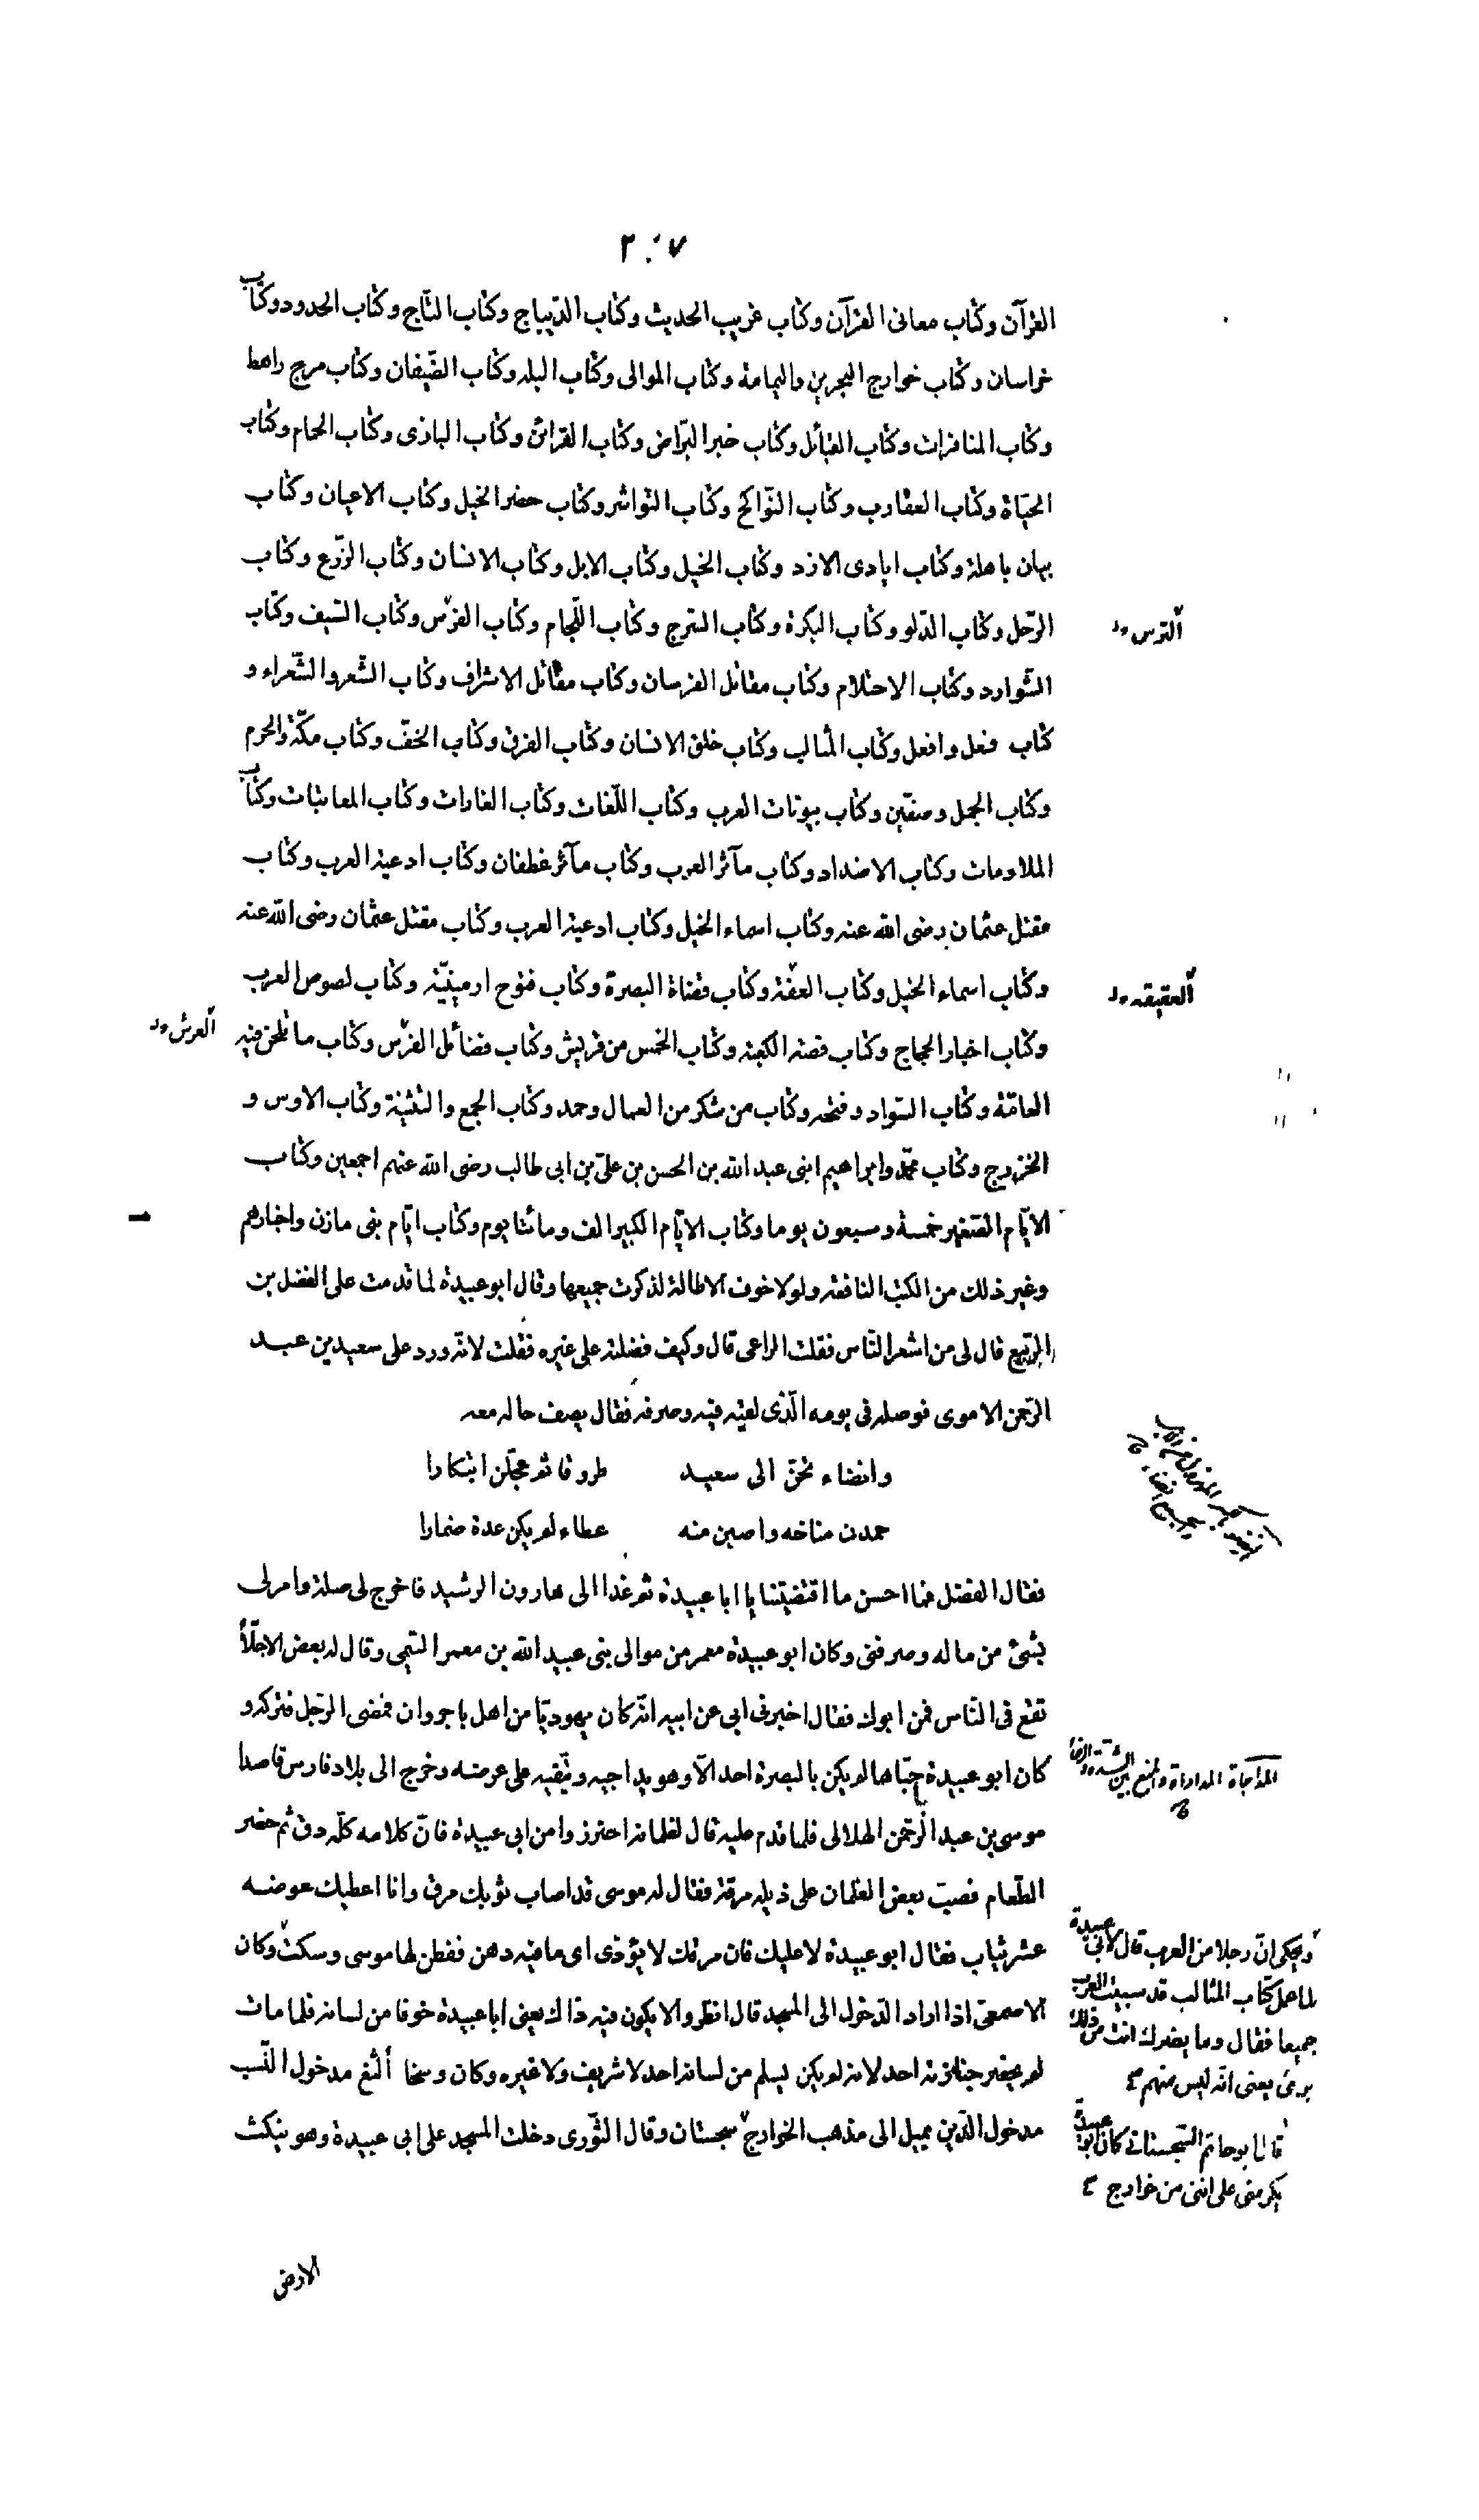 ٢٠٧
القرآن وكتاب معانى القرآن وكتاب غريب الحديث وكتاب الديباج وكتاب التّاج وكتاب الحدود وكتاب
خراسان وكتاب خوارج البحرين واليمامة وكتاب الموالى وكتاب البله وكتاب الضّيفان وكتاب مرج راهط
وكتاب المنافرات وكتاب القبائل وكتاب خبر البرّاض وكتاب القرائن وكتاب البازى وكتاب الحمام وكتاب
الحيّاة وكتاب العقارب وكتاب النّواكح وكتاب النواشر وكتاب حضر الخيل وكتاب الاعيان وكتاب
بهان باهلة وكتاب ايادى الازد وكتاب الخيل وكتاب الابل وكتاب الانسان وكتاب الزّرع وكتاب
الرّحل وكتاب الدّلو وكتاب البكرة وكتاب السّرج وكتاب اللّجام وكتاب الفرس وكتاب السّيف وكتاب
الترس
الشّوارد وكتاب الاحلام وكتاب مقاتل الفرسان وكتاب مقاتل الاشراف وكتاب الشّعر والشّعراء و
كتاب فعل وافعل وكتاب المثالب وكتاب خلق الانسان وكتاب الفرق وكتاب الخفّ وكتاب مكّة والحرم
وكتاب الجمل وصفّين وكتاب بيوتات العرب وكتاب اللّغات وكتاب الغارات وكتاب المعاتبات وكتاب
الملاومات وكتاب الاضداد وكتاب مآثر العرب وكتاب مآثر غطفان وكتاب ادعية العرب وكتاب
مقتل عثمان رضى الله عنه وكتاب اسماء الخيل وكتاب ادعية العرب وكتاب مقتل عثمان رضى الله عنه
وكتاب اسماء الخيل وكتاب العفّة وكتاب قضاة البصرة وكتاب فتوح ارمينيّة وكتاب لصوص العرب
العقيقه
وكتاب اخبار الحجاج وكتاب قصة الكعبة وكتاب الخمس من قريش وكتاب فضائل الفرس وكتاب ما تلحن فيه
العرش
العامّة وكتاب السّواد وفتحه وكتاب من شكر من العمال وحمد وكتاب الجمع والتثنية وكتاب الاوس و
الخزرج وكتاب محمّد وابراهيم ابنى عبد الله بن الحسن بن علىّ بن ابى طالب رضى الله عنهم اجمعين وكتاب
الايّام الصّغير خمسة وسبعون يوما وكتاب الايّام الكبير الف ومائتا يوم وكتاب ايّام بنى مازن واخبارهم
وغير ذلك من الكتب النافعة ولولا خوف الاطالة لذكرت جميعها وقال ابو عبيدة لما قدمت على الفضل بن
الرّبيع قال لى من اشعر النّاس فقلت الراعى قال وكيف فضلته على غيره فقلت لانّه ورد على سعيد بن عبد
الرّحمن الاموى فوصله فى يومه الّذى لقيه فيه وصرفه فقال يصف حاله معه
وانضاء تحنّ الى سعيد طروقا ثم عجّلن ابتكارا
حمدن مناخه واصبن منه عطاء لم يكن عدة ضمارا
فقال الفضل فما احسن ما اقتضيتنا يا ابا عبيدة ثم غدا الى هارون الرشيد فاخرج لى صلة وامر لى
بشئ من ماله وصرفنى وكان ابو عبيدة معمر من موالى بنى عبيد الله بن معمر التيمى وقال له بعض الاجلّاء
تقع فى النّاس فمن ابوك فقال اخبرنى ابى عن ابيه انّه كان يهوديّا من اهل باجروان فمضى الرّجل وتركه و
كان ابو عبيدة جبّاها لم يكن بالبصرة احد الّا وهو يداجيه ويتّقيه على عرضه وخرج الى بلاد فارس قاصدا
المداجاة المداراة
موسى بن عبد الرّحمن الهلالى فلما قدم عليه قال لغلمانه احترزوا من ابى عبيدة فانّ كلامه كلّه دق ثم حضر
الطّعام فصبّ بعض الغلمان على ذيله مرقة فقال له موسى قد اصاب ثوبك مرق وانا اعطيك عوضه
عشر ثياب فقال ابو عبيدة لا عليك فان مرقك لا يؤذى اى ما فيه دهن ففطن لها موسى وسكت وكان
الاصمعىّ اذا اراد الدّخول الى المسجد قال انظروا لا يكون فيه ذاك يعنى ابا عبيدة خوفا من لسانه فلما مات
لم يحضر جنازته احد لانه لم يكن يسلم من لسانه احد لا شريف ولا غيره وكان وسخا ألثغ مدخول النّسب
مدخول الدّين يميل الى مذهب الخوارج سجستان وقال الثّورى دخلت المسجد على ابى عبيدة وهو ينكث
ويحكى انّ رجلا من العرب قال لابى عبيدة
لما عمل كتاب المثالب قد سببت العرب
جميعا فقال وما يضرك انت من ذلك
برئ يعنى انّه ليس منهم
قال ابو حاتم السّجستانى كان ابو عبيدة
يكرمنى على اننى من خوارج
الارض